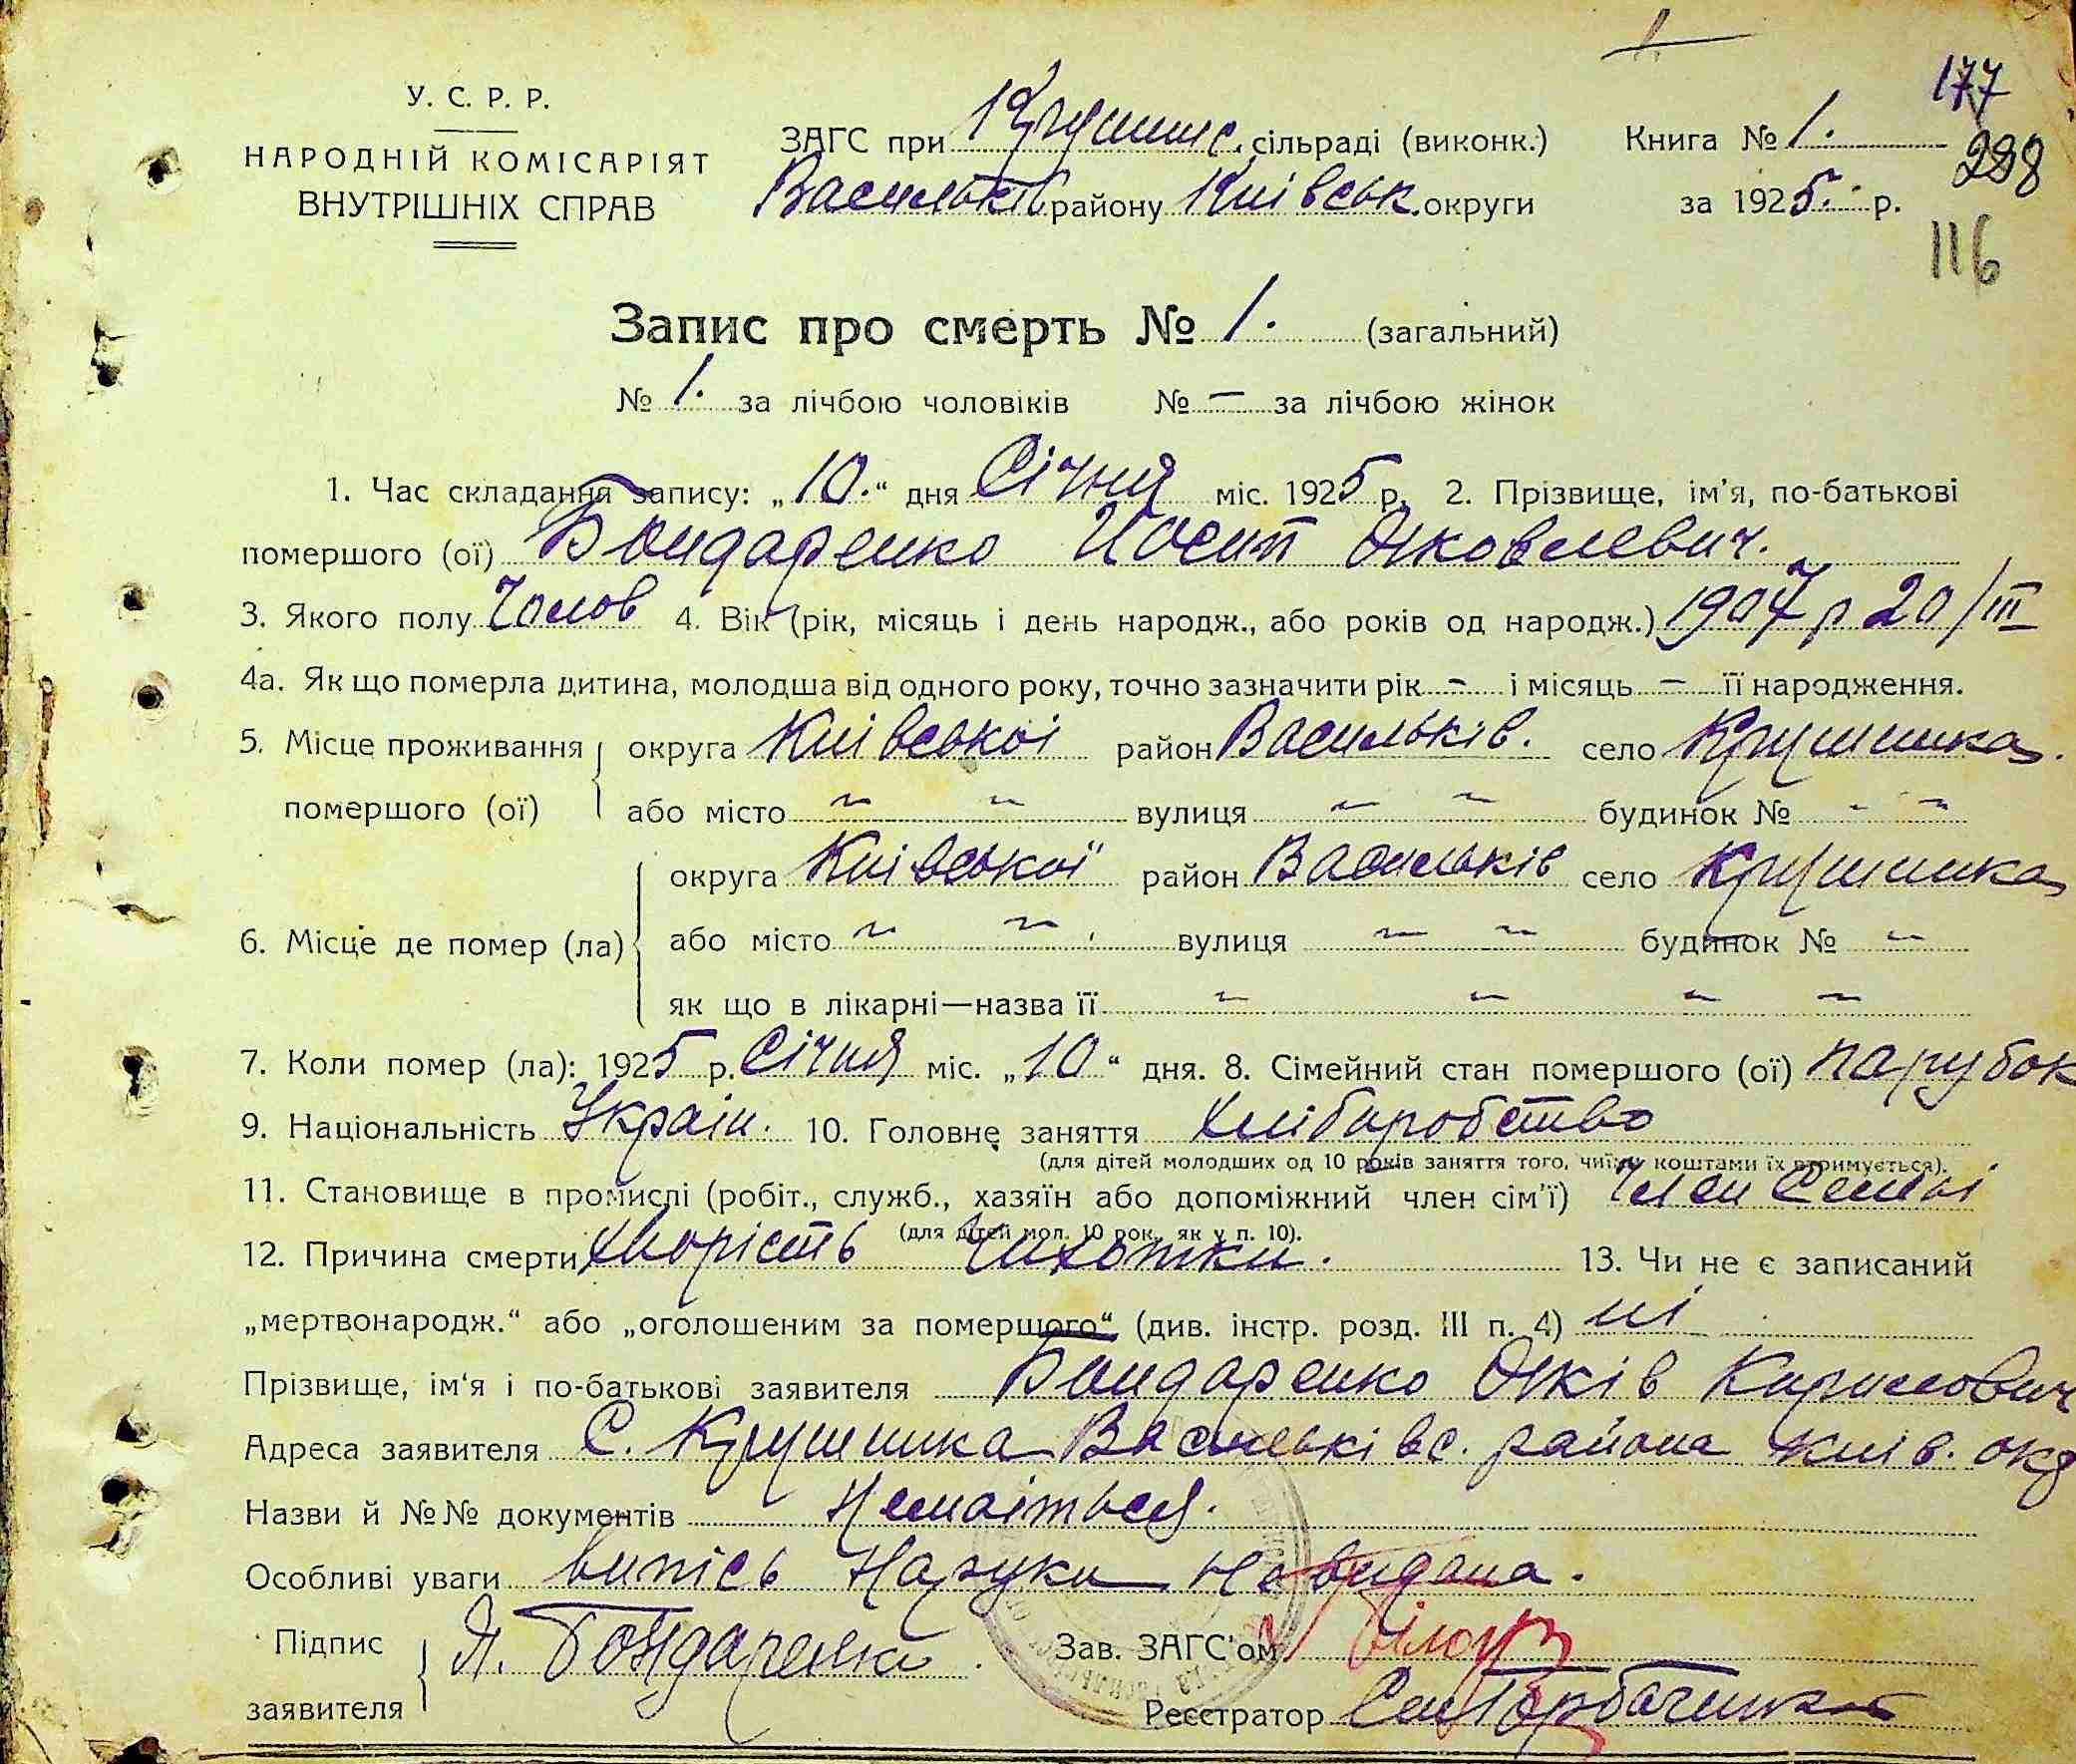 177
У. С. Р. Р.
НАРОДНІЙ КОМІСАРІЯТ
ВНУТРІШНІХ СПРАВ
ЗАГС при Крушинс. сільраді (виконк.)
Васильків району Київськ. округи
Книга № 1.
298
за 1925. р.
116
Запис про смерть № 1. (загальний)
№ 1. за лічбою чоловіків № — за лічбою жінок
1. Час складання запису: „10.“ дня Січня міс. 1925 р. 2. Прізвище, ім'я, по-батькові
помершого (ої) Бондаренко Йосип Яковлевич.
3. Якого полу Чолов 4. Вік (рік, місяць і день народж., або років од народж.) 1907 р 20/III
4а. Як що померла дитина, молодша від одного року, точно зазначити рік - і місяць - її народження.
5. Місце проживання округа Київської район Васильків. село Крушинка.
помершого (ої) або місто " " вулиця " " будинок № " "
округа Київської район Васильків село Крушинка
6. Місце де помер (ла) або місто " " вулиця " " будинок № "
як що в лікарні—назва її " " " "
7. Коли помер (ла): 1925 р. Січня міс. „10“ дня. 8. Сімейний стан помершого (ої) парубок
9. Національність Украін. 10. Головне заняття хліборобство
(для дітей молодших од 10 років заняття того, чиїми коштами їх втримується).
11. Становище в промислі (робіт., служб., хазяїн або допоміжний член сім'ї) Член Семьі
(для дітей мол. 10 рок., як у п. 10).
12. Причина смерти хворість Чихотки. 13. Чи не є записаний
„мертвонародж.“ або „оголошеним за помершого“ (див. інстр. розд. III п. 4) ні
Прізвище, ім'я і по-батькові заявителя Бондаренко Яків Кирилович
Адреса заявителя С. Крушинка Васильківс. района Київ. окр
Назви й №№ документів Немаіться.
Особливі уваги випісь Наруки Невидана.
Підпис заявителя Я. Бондаренко
Зав. ЗАГС'ом
Реєстратор